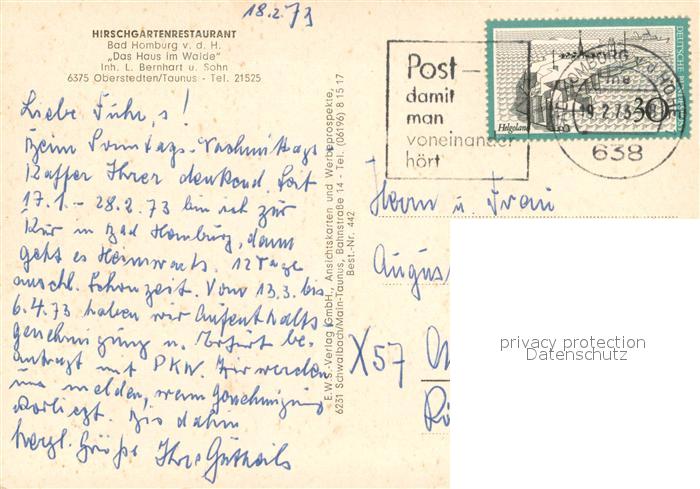 18.2.73
HIRSCHGARTENRESTAURANT
Bad Homburg v. d. H.
„Das Haus im Walde"
Inh. L. Bernhart u. Sohn
6375 Oberstedten/Taunus - Tel. 21525
Liebe Führ,s!
Beim Sonntags-Nachmittags
Kaffee Ihrer denkend. Seit
17.1. – 28.2.73 bin ich zur
Kur in Bad Homburg, dann
geht es Heimwärts. 12 Tage
anschl. Schonzeit. Vom 13.3. bis
6.4.73 haben wir Aufenthalts-
genehmigung n. Erfurt be-
antragt mit PKW. Wir werden
uns melden, wenn Genehmigung
vorliegt. Bis dahin
herzl. Grüße Ihre
E.W.S.-Verlag GmbH., Ansichtskarten und Werbeprospekte,
6231 Schwalbach/Main-Taunus, Bahnstraße 14 - Tel. (06196) 8 15 17
Best.-Nr. 442
Post –
damit
man
voneinander
hört
DEUTSCHE BUNDESPOST
30
Helgoland
19.2.73
638
Herrn u. Frau
August
X57
privacy protection
Datenschutz